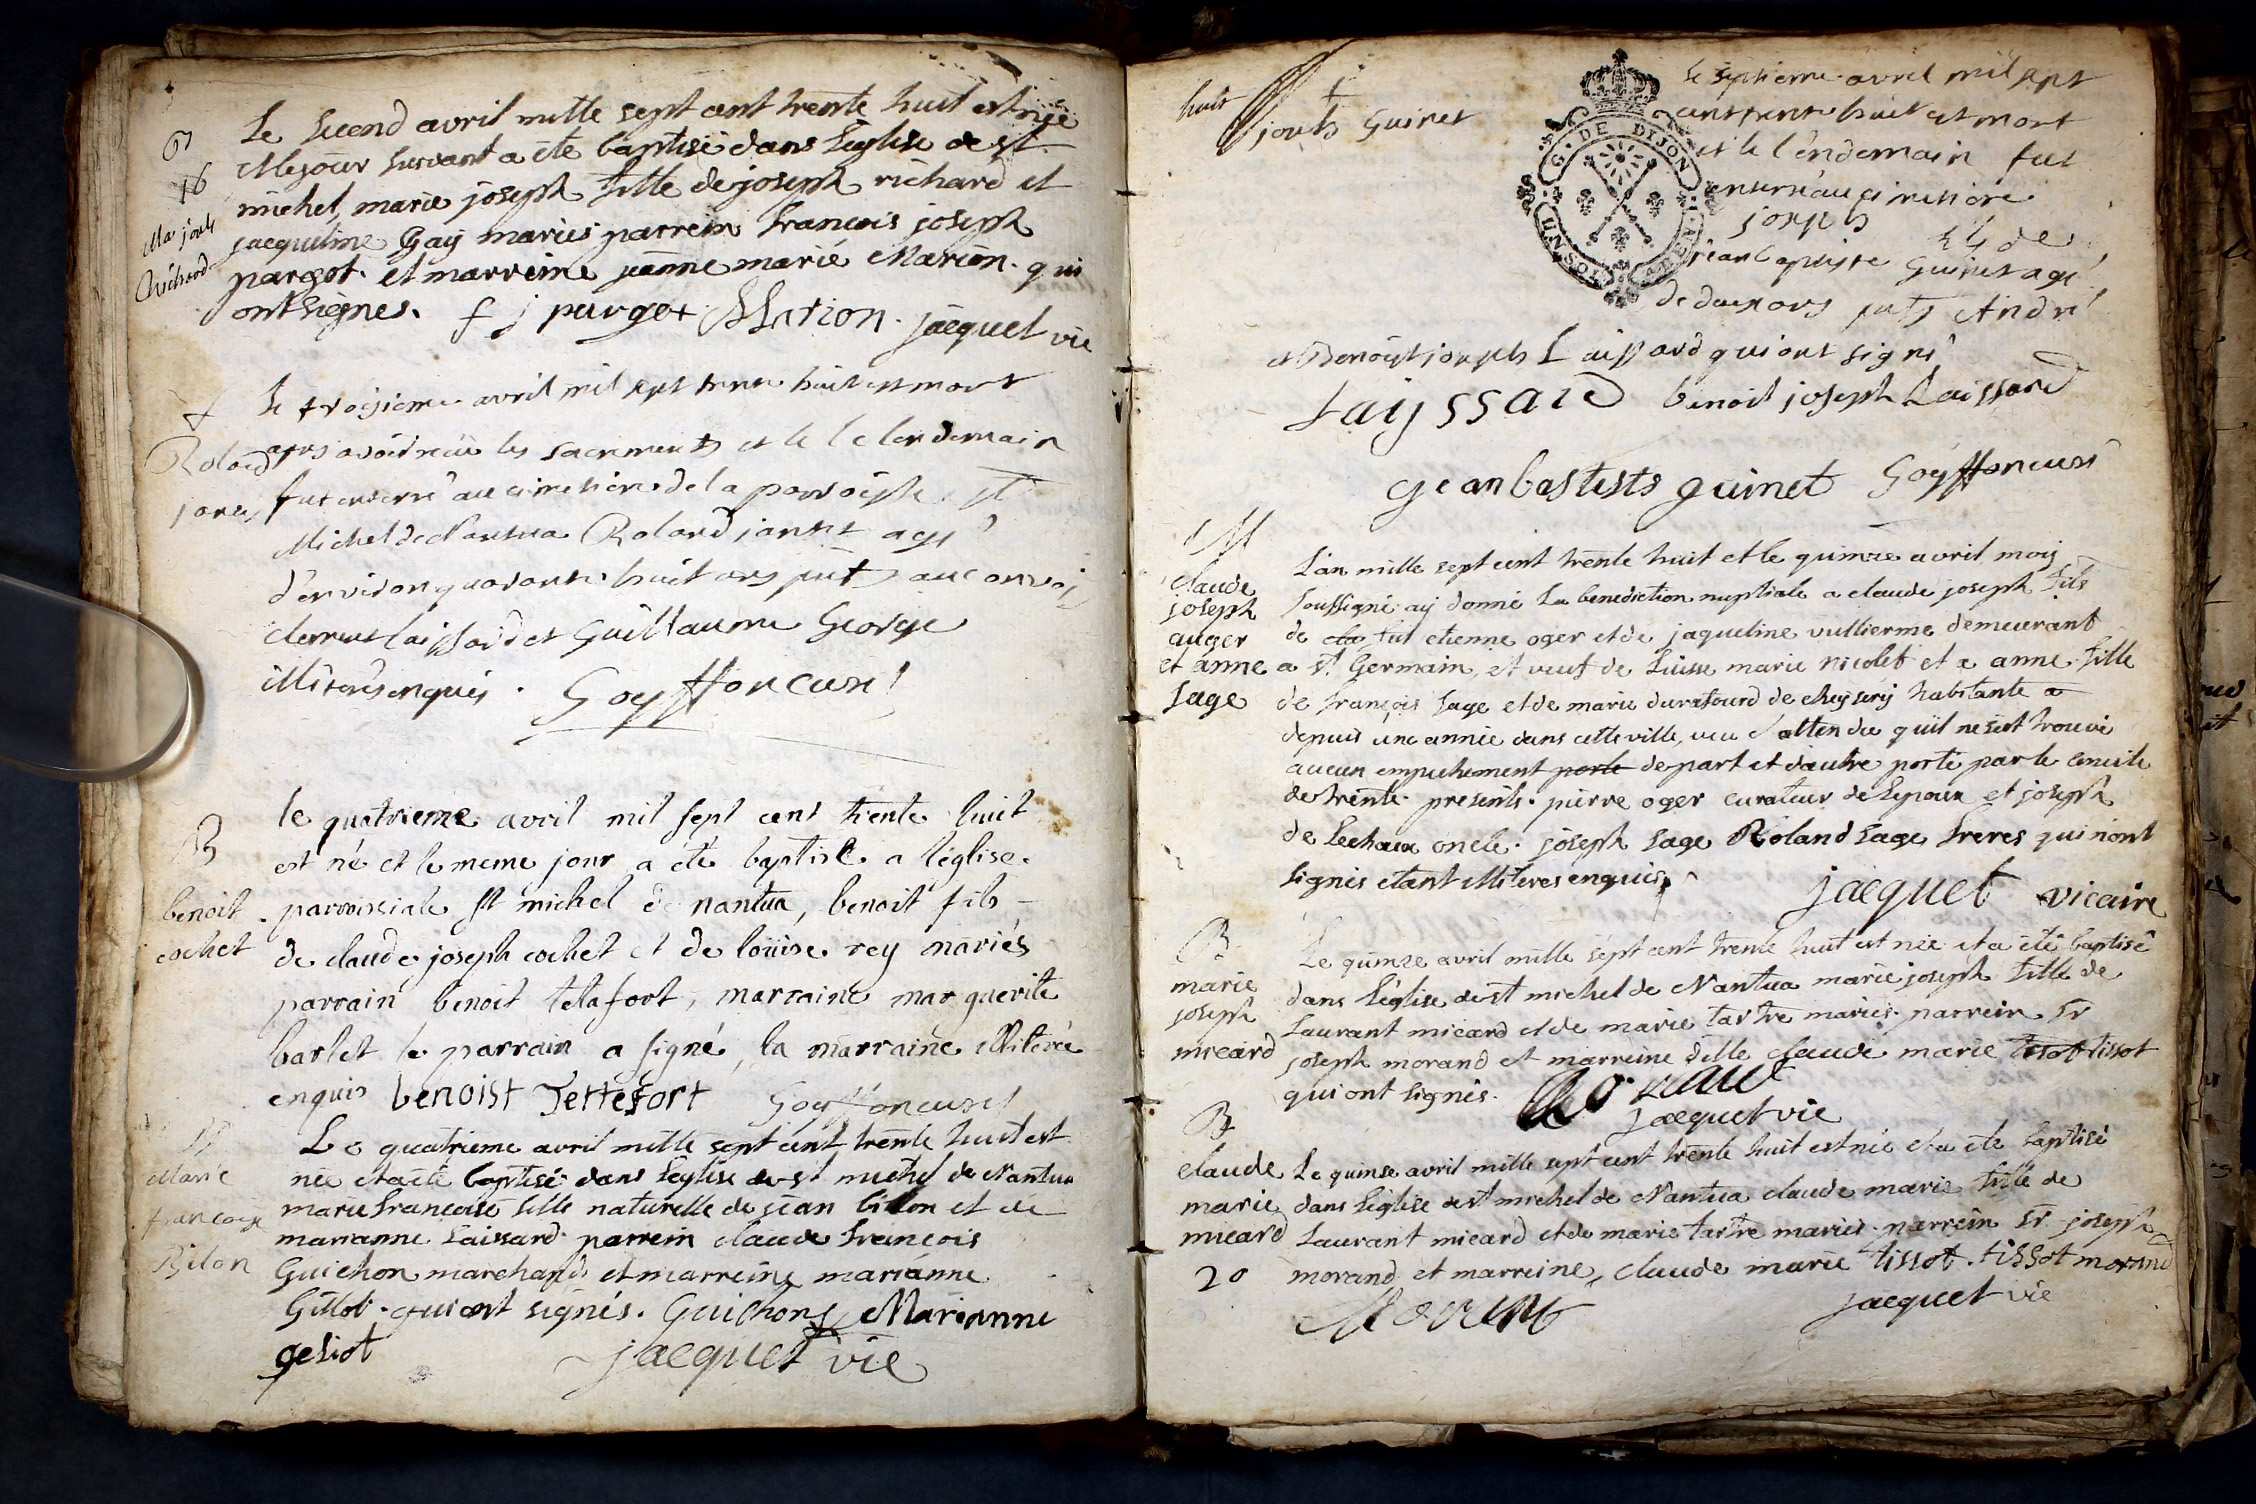 16
Ma joseph
Richard
Le second avril mille sept cent trente huit est née
et le jour suivant a été baptisé dans l'église de st
michel, marie joseph fille de joseph richard et
jacqueline Gay mariés parrein françois joseph
pargot et marreine jeanne marie Marion qui
ont signés. f j purgot Marion jacquet vic
Roland
janet
le troisieme avril mil sept trente huit est mort
apres avoir reçu les sacrements et le lendemain
fut enterré au cimetiere de la parroisse st
Michel de Nantua Roland janet agé
d'environ quarante huit ans pnts au convoi
clement laissard et Guillaume George
illiterés enquis. Goyffoncuse
B
benoit
cochet
le quatrieme avril mil sept cent trente huit
est né et le meme jour a été baptise a l'église
parroissiale st michel de nantua, benoit fils
de claude joseph cochet et de loüise rey mariés
parrain benoit tetafort, marraine marguerite
barlet le parrain a signé, la marraine illiterée
enquis benoist Tettefort
B
Marie
françoise
Bilon
Le quatrieme avril mille sept cent trente huit est
née et a été baptisé dans l'église de st michel de Nantua
marie françoise fille naturelle de jean bilon et de
marianne Laissard parrein claude françois
Guichon marchand et marreine marianne
Gillot qui ont signés. Guichon Marianne
geliot jacquet vic
huit
joseph Guinet
G. DE DIJON
le septieme avril mil sept
cent trente huit est mort
et le lendemain fut
enterré au cimetiere
joseph fils de
jean baptiste Guinet agé
de deux ans pnts André
et Benoist joseph Laissard qui ont signé
Layssard benoit joseph Laissard
gean bastists guinet Goyffoncuse
M
claude
joseph
auger
et anne
sage
L'an mille sept cent trente huit et le quinze avril moy
soussigné ay donné la benediction nuptiale a claude joseph fils
de feu etienne oger et de jaqueline vullierme demeurant
a st Germain, et veuf de Luisse marie nicolet et a anne fille
de françois sage et de marie duratourd de cheysery habitante
depuis une année dans cette ville, veu et attendu qu'il ne s'est trouvé
aucun empechement porte de part et d'autre porté par le concile
de trente presents pierre oger curateur de l'epoux et joseph
de Lechaux oncle joseph sage Roland sage freres qui n'ont
signés etant illiteres enquis jacquet vicaire
B
marie
joseph
micard
Le quinze avril mille sept cent trente huit est née et a été baptisé
dans l'église de st michel de Nantua marie joseph fille de
Laurant micard et de marie tartre mariés parrein Sr
joseph morand et marreine dlle claude marie tissot tissot
qui ont signés. jacquet vic
B
claude
marie
micard
20
Le quinse avril mille sept cent trente huit est née et a été baptisé
dans l'église de st michel de Nantua claude marie fille de
Laurant micard et de marie tartre mariés parrein Sr joseph
morand et marreine, claude marie tissot. tissot morand
jacquet vic